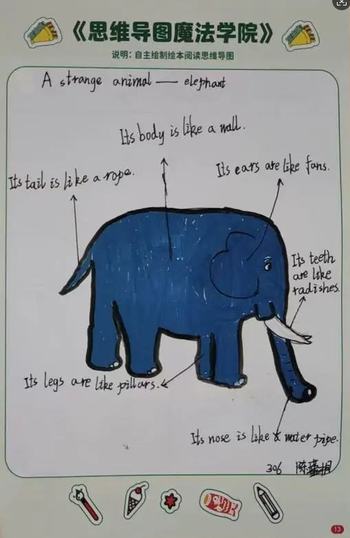 《思维导图魔法学院》
说明：自主绘制绘本阅读思维导图
A strange animal — elephant
Its body is like a wall.
Its tail is like a rope.
Its ears are like fans.
Its teeth
are like
radishes.
Its legs are like pillars.
Its nose is like a water pipe.
306 陈
13